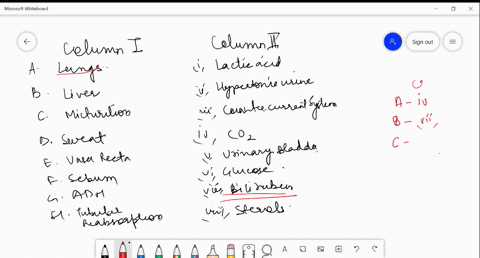 Microsoft Whiteboard
Sign out
Column I
Column II
A. Lungs
i, Lactic acid
B. Liver
ii, Hypertonic urine
C. Micturition
iii, Counte current System
D. Sweat
iv, CO2
E. Vasa Recta
v, Urinary Bladder
F. Sebum
vi, Glucose
G. ADH
vii, Bilirubin
H. Tubular Reabsorption
viii, Sterols
A - iv
B - vii
C -
A